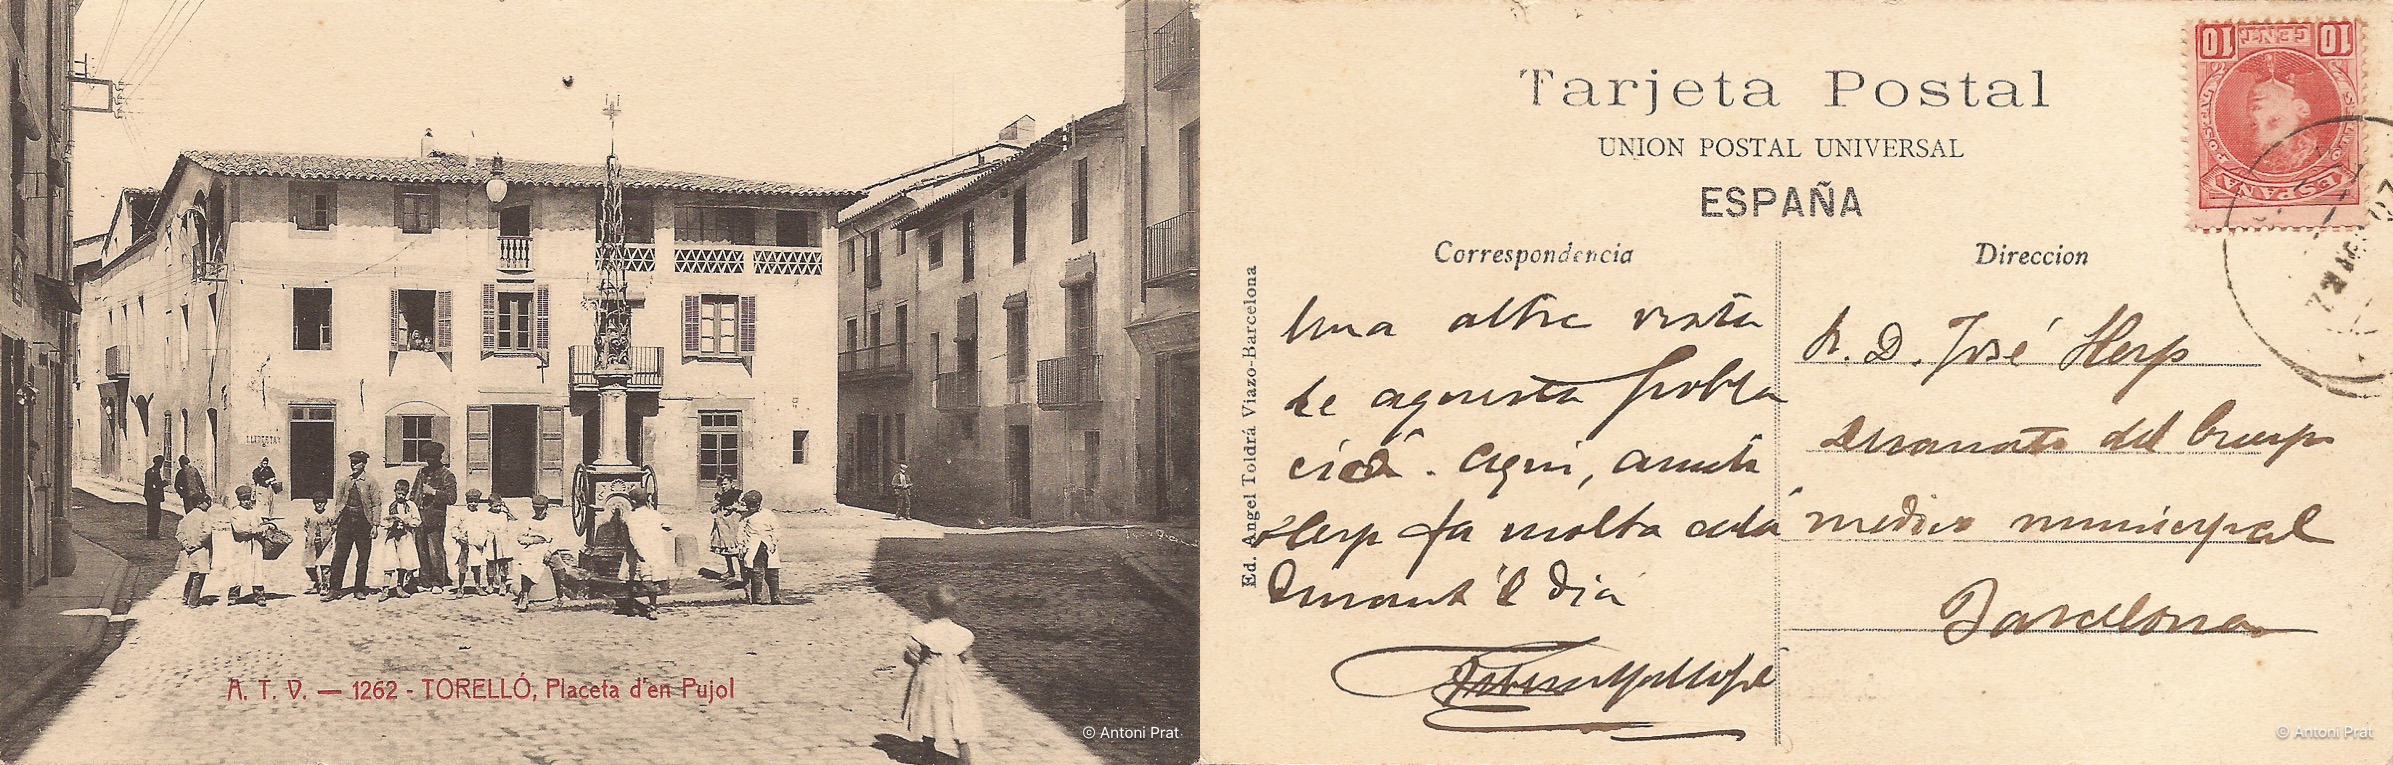 A. T. V. — 1262 - TORELLÓ, Placeta d'en Pujol
© Antoni Prat
Tarjeta Postal
UNION POSTAL UNIVERSAL
ESPAÑA
Correspondencia
Direccion
Ed. Angel Toldrá Viazo-Barcelona
Una altre vista
de aquesta pobla
ció. Aqui, amich
Herp fa molta caló
Durant 'l dia
Sr. D. José Herp
Decanato del Cuerpo
medico municipal
Barcelona
10 CENT 10
ESPAÑA
© Antoni Prat